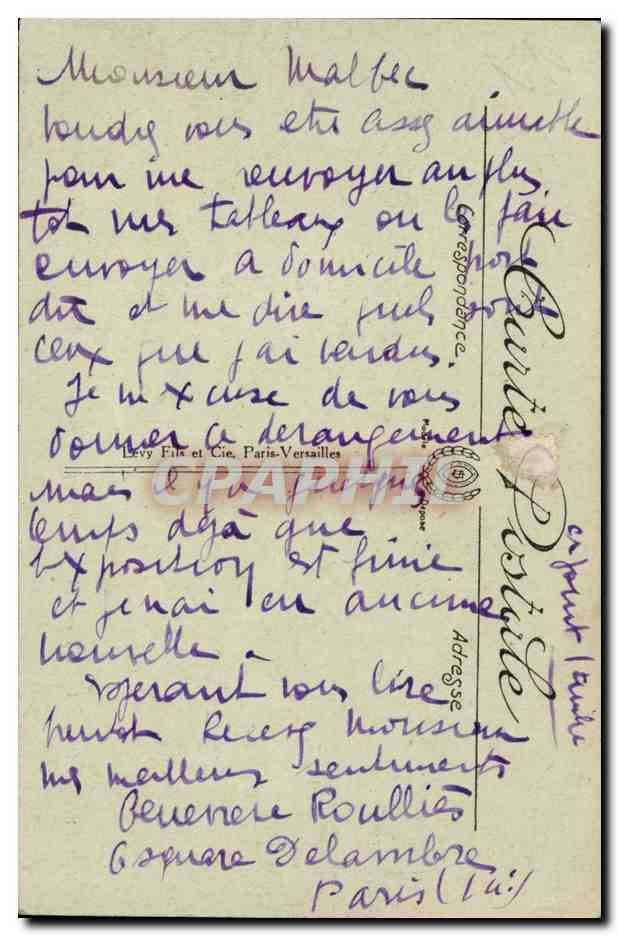 Monsieur Malbec
voudrez vous etre assez aimable
pour me renvoyer au plus
tot mes tableaux ou les faire
envoyer a domicile
et me dire quels sont
ceux que j'ai vendus.
Je m'excuse de vous
donner ce derangement
mais il y a quelque
temps déjà que
l'exposition est finie
et je n'ai eu aucune
nouvelle.
Esperant vous lire
bientot Recevez Monsieur
mes meilleurs sentiments
Genevieve Roulliès
6 square Delambre
Paris
ci joint 1 timbre
Carte Postale
Correspondance
Adresse
Levy Fils et Cie, Paris-Versailles
Modèle
Déposé
CPAPHIL